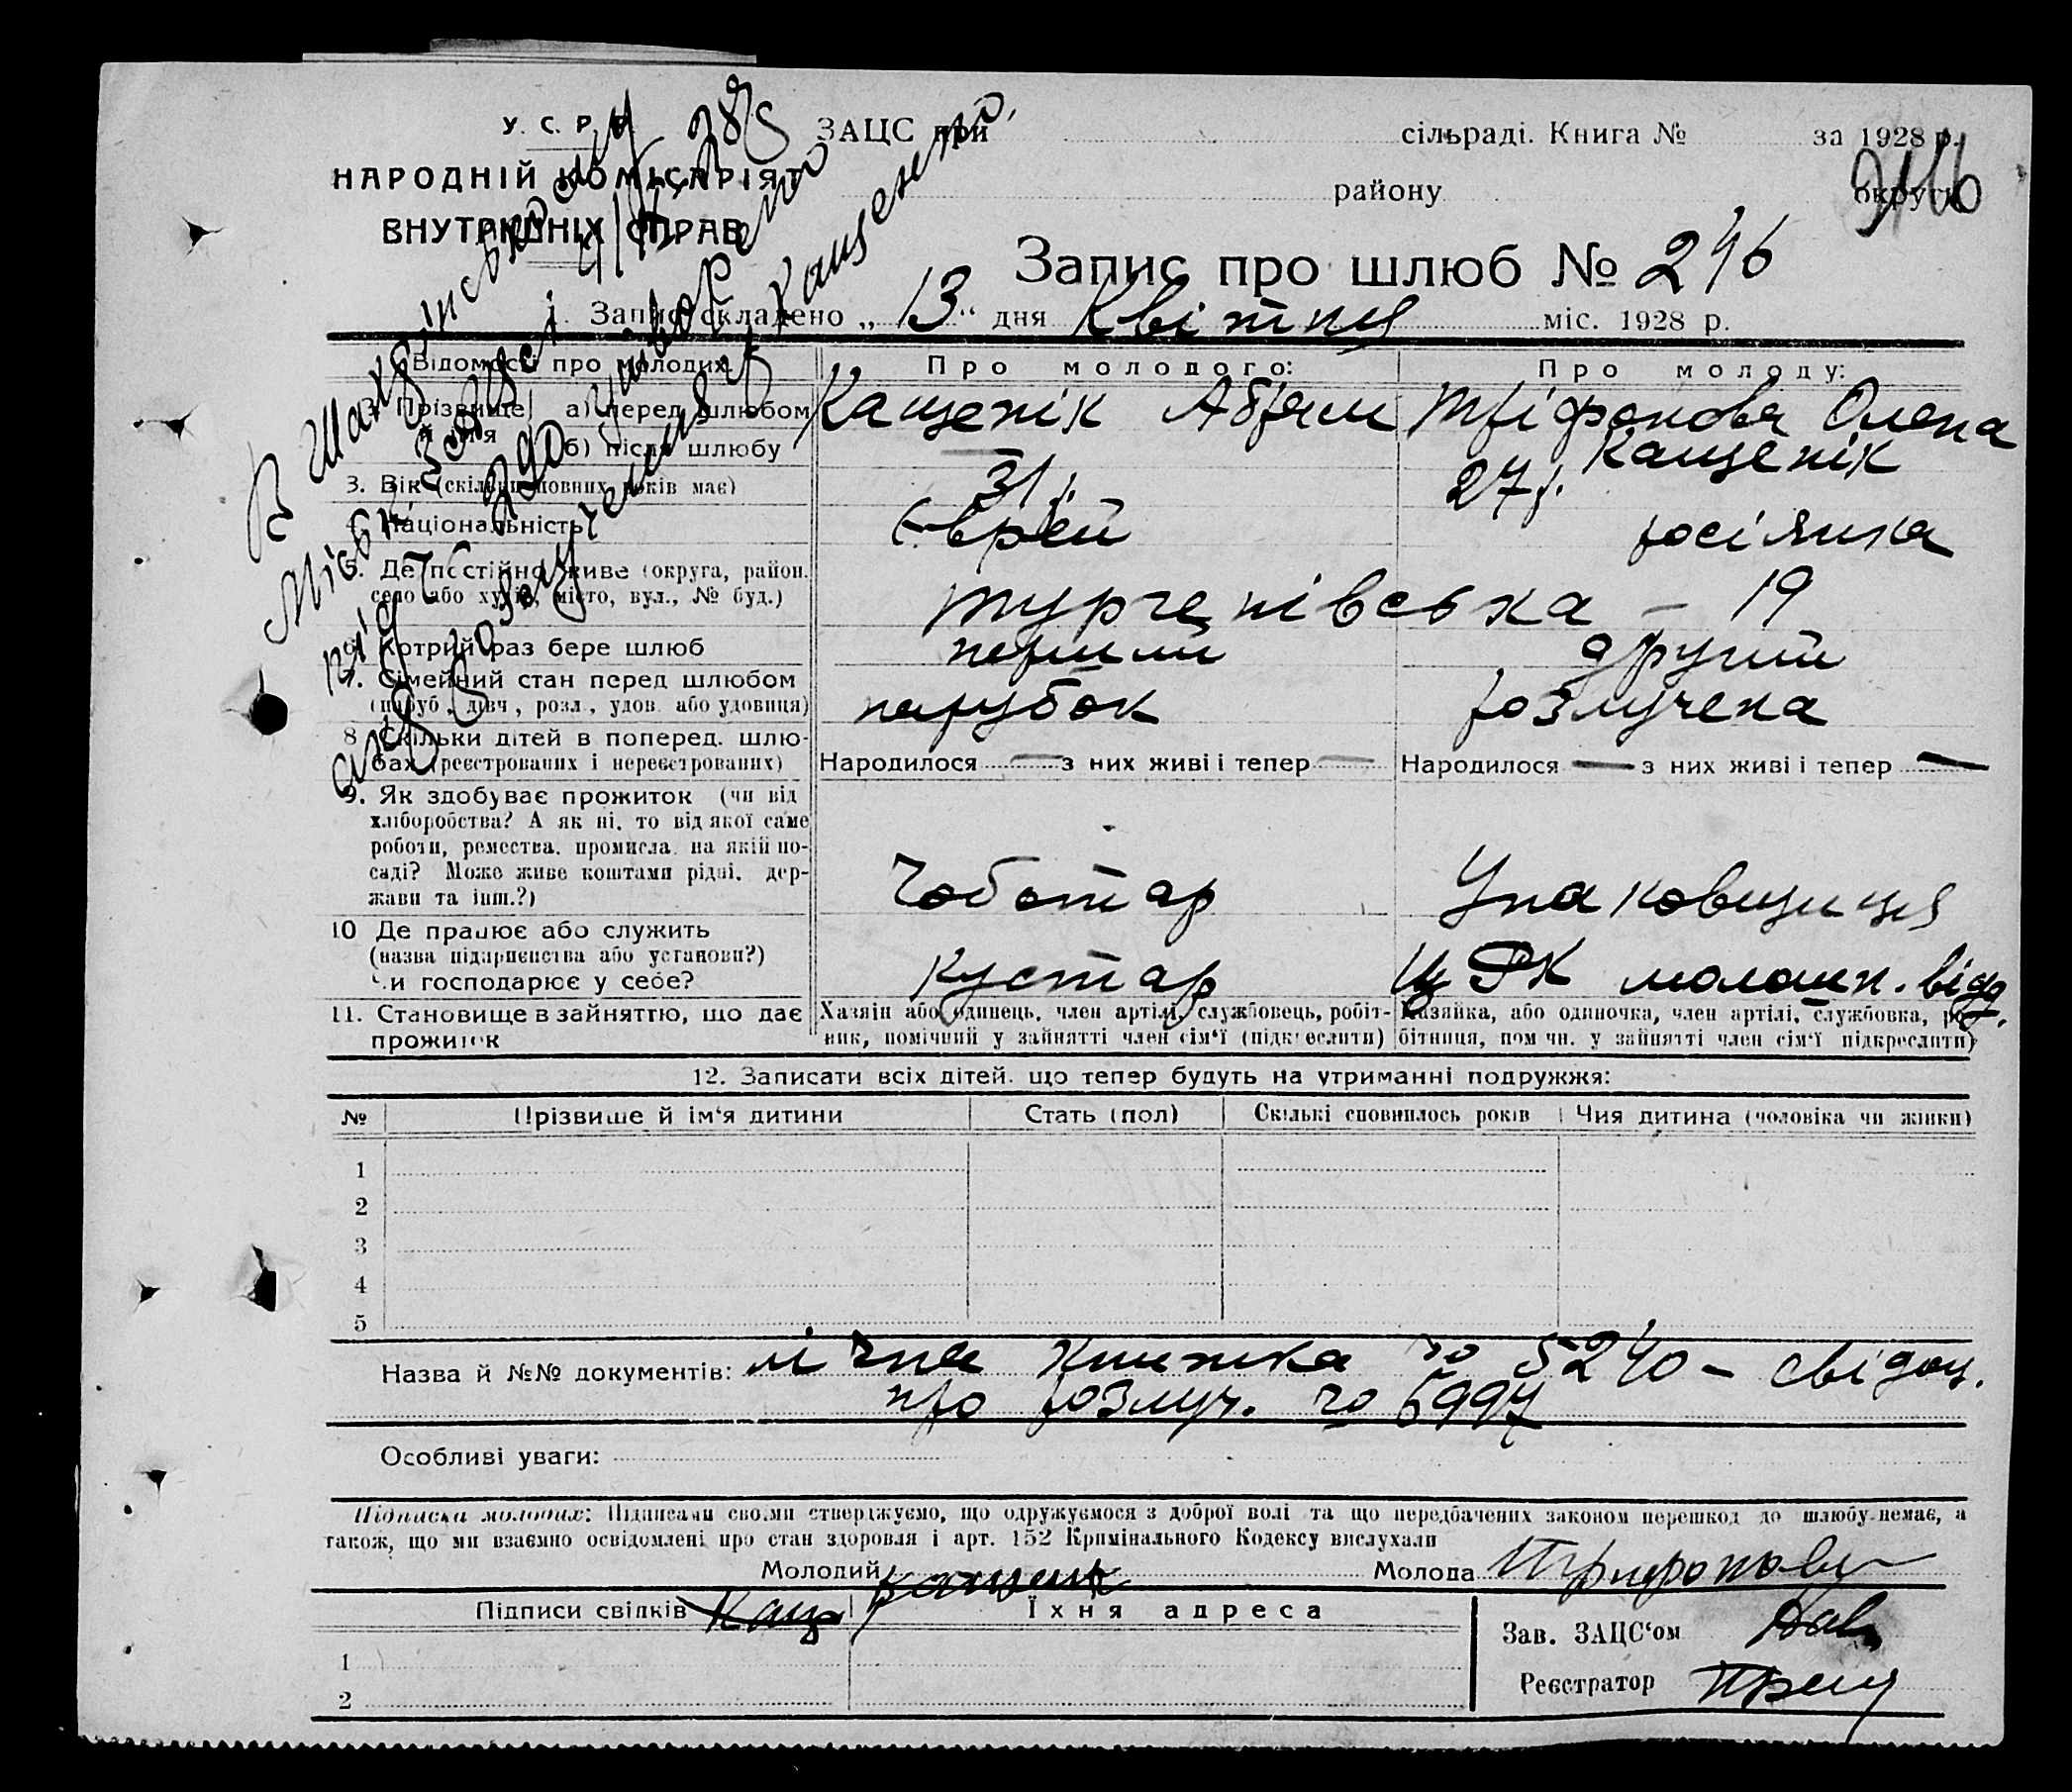 У. С. Р. Р.
НАРОДНІЙ КОМІСАРІЯТ
ВНУТРІШНІХ СПРАВ
ЗАЦС при сільраді. Книга № за 1928 р.
району округи
246
Запис про шлюб № 246
1. Запис складено „ 13 “ дня Квітня міс. 1928 р.
В Шахтинському
Міськ. Загсі
під 290 утворено
розлучення з Кащенко,
Відомості про молодих
Про молодого:
Про молоду:
Прізвище й ім'я а) перед шлюбом
Кащенік Абрам
Тріфонова Олена
б) після шлюбу
—
Кащенік
3. Вік (скільки повних років має)
31 р.
27 р.
4. Національність
Єврей
росіянка
5. Де постійно живе (округа, район. село або хутір, місто, вул., № буд.)
тургенівська – 19
6. Котрий раз бере шлюб
перший
другий
7. Сімейний стан перед шлюбом
(паруб., дівч., розл., удов. або удовиця)
парубок
розлучена
8. Скільки дітей в поперед. шлюбах (реєстрованих і нереєстрованих)
Народилося — з них живі і тепер —
Народилося — з них живі і тепер —
9. Як здобуває прожиток (чи від
хліборобства? А як ні, то від якої саме
роботи, ремества, промисла, на якій по-
саді? Може живе коштами рідні, дер-
жави та інш.?)
Чоботар
Упаковщиця
10 Де працює або служить
(назва підприємства або установи?)
Чи господарює у себе?
кустар
ЦРК молошн. відд.
11. Становище в зайняттю, що дає
прожиток
Хазяін або одинець, член артілі, службовець, робіт-
ник, помічний у зайнятті член сім'ї (підкреслити)
Хазяйка, або одиночка, член артілі, службовка, ро-
бітниця, пом чн. у зайнятті член сім'ї підкреслити)
12. Записати всіх дітей, що тепер будуть на утриманні подружжя:
№ Прізвище й ім'я дитини Стать (пол) Скількі сповнилось років Чия дитина (чоловіка чи жінки)
1
2
3
4
5
Назва й №№ документів: лічна книжка № 5240 – свідоц.
про розлуч. № 6997
Особливі уваги:
Підписка молодих: Підписами своїми стверджуємо, що одружуємося з доброї волі та що передбачених законом перешкод до шлюбу немає, а
також, що ми взаємно освідомлені про стан здоровля і арт. 152 Кримінального Кодексу вислухали
Молодий Кащенік Молода Трифонова
Підписи свідків Кащ Їхня адреса
1
2
Зав. ЗАЦС'ом
Реєстратор